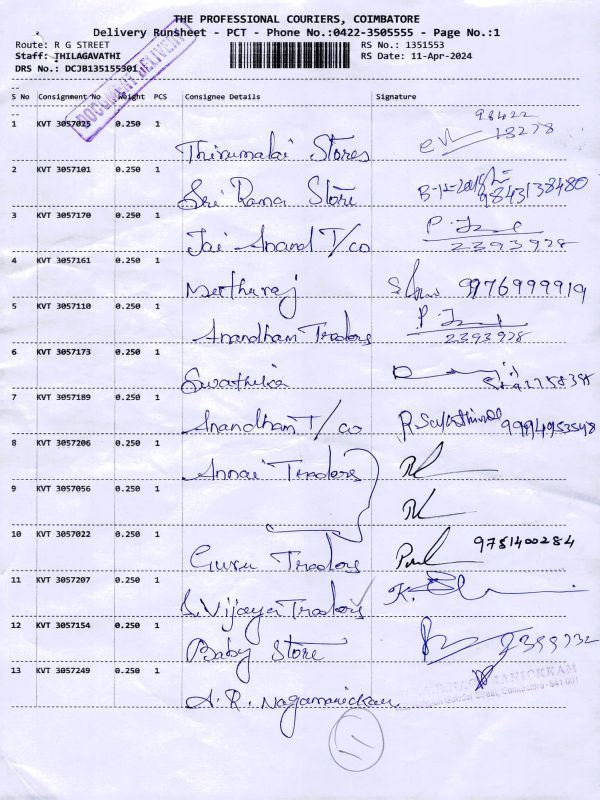 THE PROFESSIONAL COURIERS, COIMBATORE
Delivery Runsheet - PCT - Phone No.:0422-3505555 - Page No.:1
Route: R G STREET
RS No.: 1351553
Staff: THILAGAVATHI
RS Date: 11-Apr-2024
DRS No.: DCJB135155301
DOCUMENT DELIVERY
S No Consignment No Weight PCS Consignee Details Signature
98422
1 KVT 3057025 0.250 1 Thirumalai Stores 13278
2 KVT 3057101 0.250 1 Sri Rama Store 9843138480
3 KVT 3057170 0.250 1 Jai Anand T/co 2393978
4 KVT 3057161 0.250 1 Meethuraj 9776999919
5 KVT 3057110 0.250 1 Anandham Traders 2393978
6 KVT 3057173 0.250 1 Swathika
7 KVT 3057189 0.250 1 Anandham T/co
8 KVT 3057206 0.250 1 Annai Traders
9 KVT 3057056 0.250 1
10 KVT 3057022 0.250 1 Guru Traders 9781400284
11 KVT 3057207 0.250 1 S. Vijaya Traders
12 KVT 3057154 0.250 1 Baby Store
13 KVT 3057249 0.250 1 A. R. Nagamanickam
Street, Coimbatore - 641 001
11